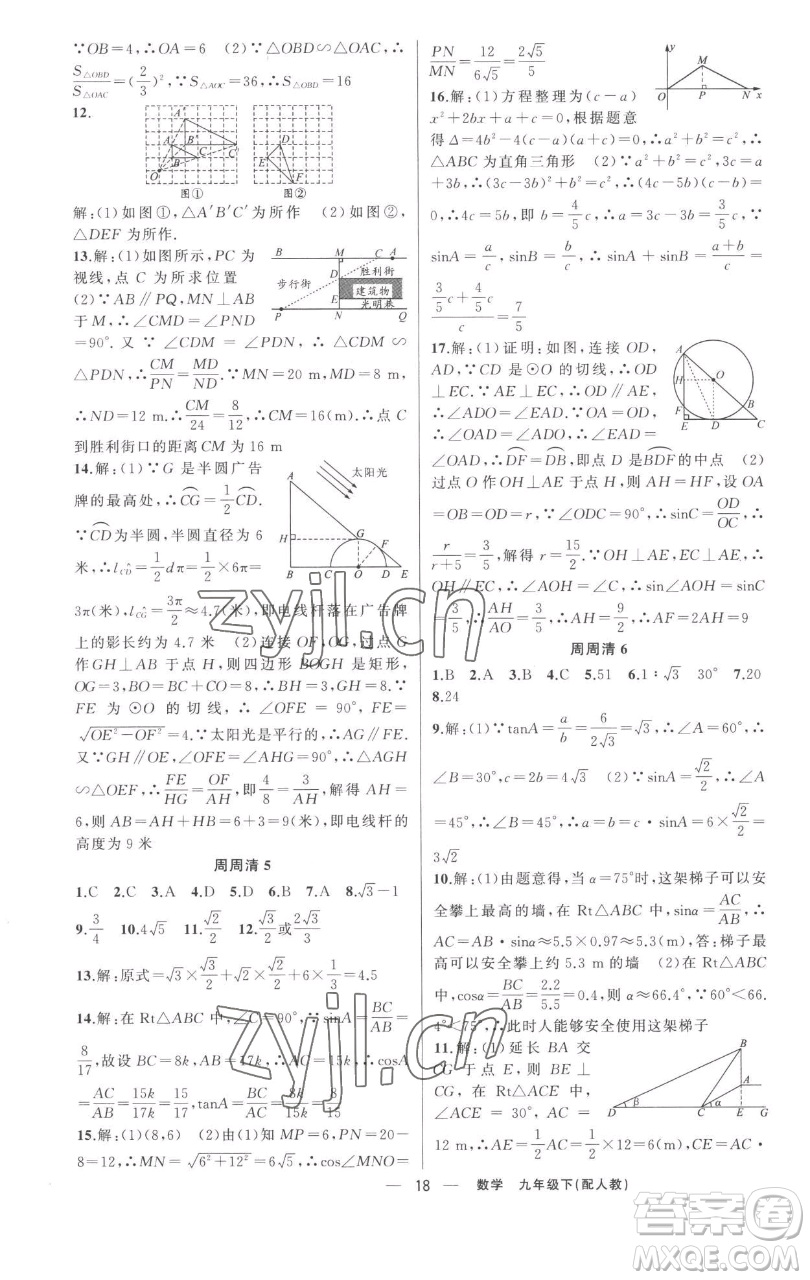 ∵OB=4,∴OA=6　(2)∵△OBD∽△OAC,∴
S△OBD/S△OAC=(2/3)²,∵S△AOC=36,∴S△OBD=16
12.
图①　图②
解:(1)如图①,△A′B′C′为所作　(2)如图②,
△DEF为所作.
13.解:(1)如图所示,PC为
视线,点C为所求位置
(2)∵AB∥PQ,MN⊥AB
于M,∴∠CMD=∠PND
=90°.又∵∠CDM=∠PDN,∴△CDM∽
B M C A
D 胜利街
步行街 建筑物
E 光明巷
P N Q
△PDN,∴CM/PN=MD/ND.∵MN=20 m,MD=8 m,
∴ND=12 m.∴CM/24=8/12,∴CM=16(m).∴点C
到胜利街口的距离CM为16 m
14.解:(1)∵G是半圆广告
牌的最高处,∴⌒CG=1/2⌒CD.
∵⌒CD为半圆,半圆直径为6
米,∴l⌒CD=1/2dπ=1/2×6π=
太阳光
A
H G F
B C O D E
3π(米),∴l⌒CG=3π/2≈4.7(米),即电线杆落在广告牌
上的影长约为4.7米　(2)连接OF,OG,过点G
作GH⊥AB于点H,则四边形BOGH是矩形,
OG=3,BO=BC+CO=8.∴BH=3,GH=8.∵
FE为⊙O的切线,∴∠OFE=90°,FE=
√(OE²-OF²)=4.∵太阳光是平行的,∴AG∥FE.
又∵GH∥OE,∠OFE=∠AHG=90°,∴△AHG
∽△OEF,∴FE/HG=OF/AH,即4/8=3/AH,解得AH=
6,则AB=AH+HB=6+3=9(米),即电线杆的
高度为9米
周周清5
1.C　2.C　3.A　4.D　5.D　6.B　7.A　8.√3-1
9.3/4　10.4√5　11.√2/2　12.√3/2或2√3/3
13.解:原式=√3×√3/2+√2×√2/2+6×1/3=4.5
14.解:在Rt△ABC中,∠C=90°,∵sinA=BC/AB=
8/17,故设BC=8k,AB=17k,∴AC=15k,∴cosA
=AC/AB=15k/17k=15/17,tanA=BC/AC=8k/15k=8/15
15.解:(1)(8,6)　(2)由(1)知MP=6,PN=20-
8=12,∴MN=√(6²+12²)=6√5,∴cos∠MNO=
PN/MN=12/(6√5)=2√5/5
y M
O P N x
16.解:(1)方程整理为(c-a)
x²+2bx+a+c=0,根据题意
得Δ=4b²-4(c-a)(a+c)=0,∴a²+b²=c²,∴
△ABC为直角三角形　(2)∵a²+b²=c²,3c=a
+3b,∴(3c-3b)²+b²=c²,∴(4c-5b)(c-b)=
0,∴4c=5b,即b=4/5c,∴a=3c-3b=3/5c.∵
sinA=a/c,sinB=b/c,∴sinA+sinB=(a+b)/c=
(3/5c+4/5c)/c=7/5
17.解:(1)证明:如图,连接OD,
AD,∵EC是⊙O的切线,∴OD
⊥EC.∵AE⊥EC,∴OD∥AE,
∴∠ADO=∠EAD.∵OA=OD,∴
∠OAD=∠ADO,∴∠EAD=
A
H O
F B
E D C
∠OAD,∴⌒DF=⌒DB,即点D是⌒BDF的中点　(2)
过点O作OH⊥AE,则有AH=HF,设OA
=OB=OD=r,∵∠ODC=90°,∴sinC=OD/OC,∴
r/(r+5)=3/5,解得r=15/2.∵OH⊥AE,AE⊥EC,∴
OH∥EC,∴∠AOH=∠C,∴sin∠AOH=sinC=
3/5,∴AH/AO=3/5,∴AH=9/2,∴AF=2AH=9
周周清6
1.B　2.A　3.B　4.C　5.51　6.1∶√3　30°　7.20
8.24
9.解:(1)∵tanA=a/b=6/(2√3)=√3,∴∠A=60°,∴
∠B=30°,c=2b=4√3　(2)∵sinA=√2/2,∴∠A
=45°,∴∠B=45°,∴b=a=c·sinA=6×√2/2=
3√2
10.解:(1)由题意得,当α=75°时,这架梯子可以安
全攀上最高的墙,在Rt△ABC中,sinα=AC/AB,∴
AC=AB·sinα≈5.5×0.97≈5.3(m),答:梯子最
高可以安全攀上约5.3 m的墙　(2)在Rt△ABC
中,cosα=BC/AB=2.2/5.5=0.4,∴α≈66.4°,∵60°<66.
4°<75°,∴此时人能够安全使用这架梯子
11.解:(1)延长BA交
CG于点E,则BE⊥
CG,在Rt△ACE中,
∠ACE=30°,AC=
B
A
D β C α E G
12 m,∴AE=1/2AC=1/2×12=6(m),EC=AC·
— 18 — 数学　九年级下(配人教)
zyjl.cn
zyjl.cn
答案圈
MXQE.COM